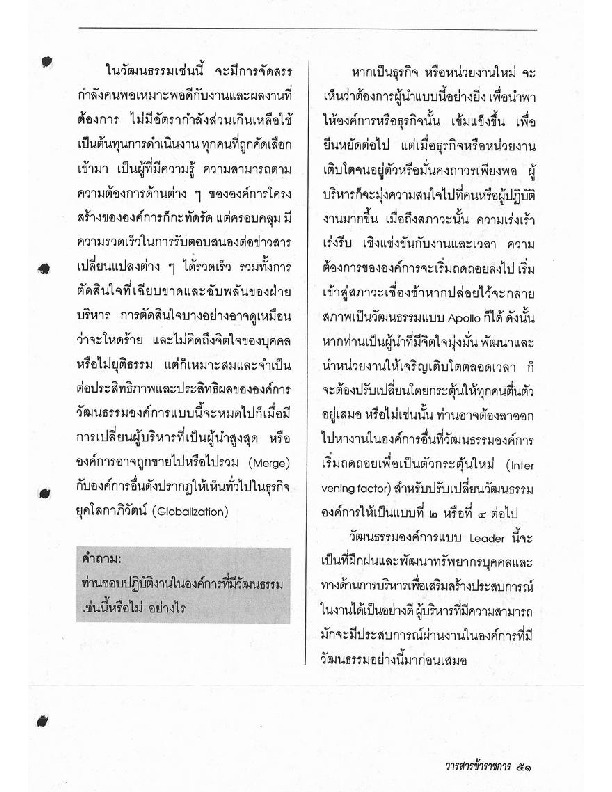 ในวัฒนธรรมเช่นนี้ จะมีการจัดสรร
กำลังคนพอเหมาะพอดีกับงานและผลงานที่
ต้องการ ไม่มีอัตรากำลังส่วนเกินเหลือใช้
เป็นต้นทุนการดำเนินงาน ทุกคนที่ถูกคัดเลือก
เข้ามา เป็นผู้ที่มีความรู้ ความสามารถตาม
ความต้องการด้านต่าง ๆ ขององค์การโครง
สร้างขององค์การก็กะทัดรัด แต่ครอบคลุม มี
ความรวดเร็วในการรับตอบสนองต่อข่าวสาร
เปลี่ยนแปลงต่าง ๆ ได้รวดเร็ว รวมทั้งการ
ตัดสินใจที่เฉียบขาดและฉับพลันของฝ่าย
บริหาร การตัดสินใจบางอย่างอาจดูเหมือน
ว่าจะโหดร้าย และไม่คิดถึงจิตใจของบุคคล
หรือไม่ยุติธรรม แต่ก็เหมาะสมและจำเป็น
ต่อประสิทธิภาพและประสิทธิผลขององค์การ
วัฒนธรรมองค์การแบบนี้จะหมดไปก็เมื่อมี
การเปลี่ยนผู้บริหารที่เป็นผู้นำสูงสุด หรือ
องค์การอาจถูกขายไปหรือไปรวม (Merge)
กับองค์การอื่นดังปรากฏให้เห็นทั่วไปในธุรกิจ
ยุคโลกาภิวัตน์ (Globalization)
คำถาม:
ท่านชอบปฏิบัติงานในองค์การที่มีวัฒนธรรม
เช่นนี้หรือไม่ อย่างไร
หากเป็นธุรกิจ หรือหน่วยงานใหม่ จะ
เห็นว่าต้องการผู้นำแบบนี้อย่างยิ่ง เพื่อนำพา
ให้องค์การหรือธุรกิจนั้น เข้มแข็งขึ้น เพื่อ
ยืนหยัดต่อไป แต่เมื่อธุรกิจหรือหน่วยงาน
เติบโตจนอยู่ตัวหรือมั่นคงถาวรเพียงพอ ผู้
บริหารก็จะมุ่งความสนใจไปที่คนหรือผู้ปฏิบัติ
งานมากขึ้น เมื่อถึงสภาวะนั้น ความเร่งเร้า
เร่งรีบ เชิงแข่งขันกับงานและเวลา ความ
ต้องการขององค์การจะเริ่มถดถอยลงไป เริ่ม
เข้าสู่สภาวะเชื่องช้าหากปล่อยไว้จะกลาย
สภาพเป็นวัฒนธรรมแบบ Apollo ก็ได้ ดังนั้น
หากท่านเป็นผู้นำที่มีจิตใจมุ่งมั่น พัฒนาและ
นำหน่วยงานให้เจริญเติบโตตลอดเวลา ก็
จะต้องปรับเปลี่ยนโดยกระตุ้นให้ทุกคนตื่นตัว
อยู่เสมอ หรือไม่เช่นนั้น ท่านอาจต้องลาออก
ไปหางานในองค์การอื่นที่วัฒนธรรมองค์การ
เริ่มถดถอยเพื่อเป็นตัวกระตุ้นใหม่ (Inter
vening factor) สำหรับปรับเปลี่ยนวัฒนธรรม
องค์การให้เป็นแบบที่ ๒ หรือที่ ๔ ต่อไป
วัฒนธรรมองค์การแบบ Leader นี้จะ
เป็นที่ฝึกฝนและพัฒนาทรัพยากรบุคคลและ
ทางด้านการบริหารเพื่อเสริมสร้างประสบการณ์
ในงานได้เป็นอย่างดี ผู้บริหารที่มีความสามารถ
มักจะมีประสบการณ์ผ่านงานในองค์การที่มี
วัฒนธรรมอย่างนี้มาก่อนเสมอ
วารสารข้าราชการ ๕๑